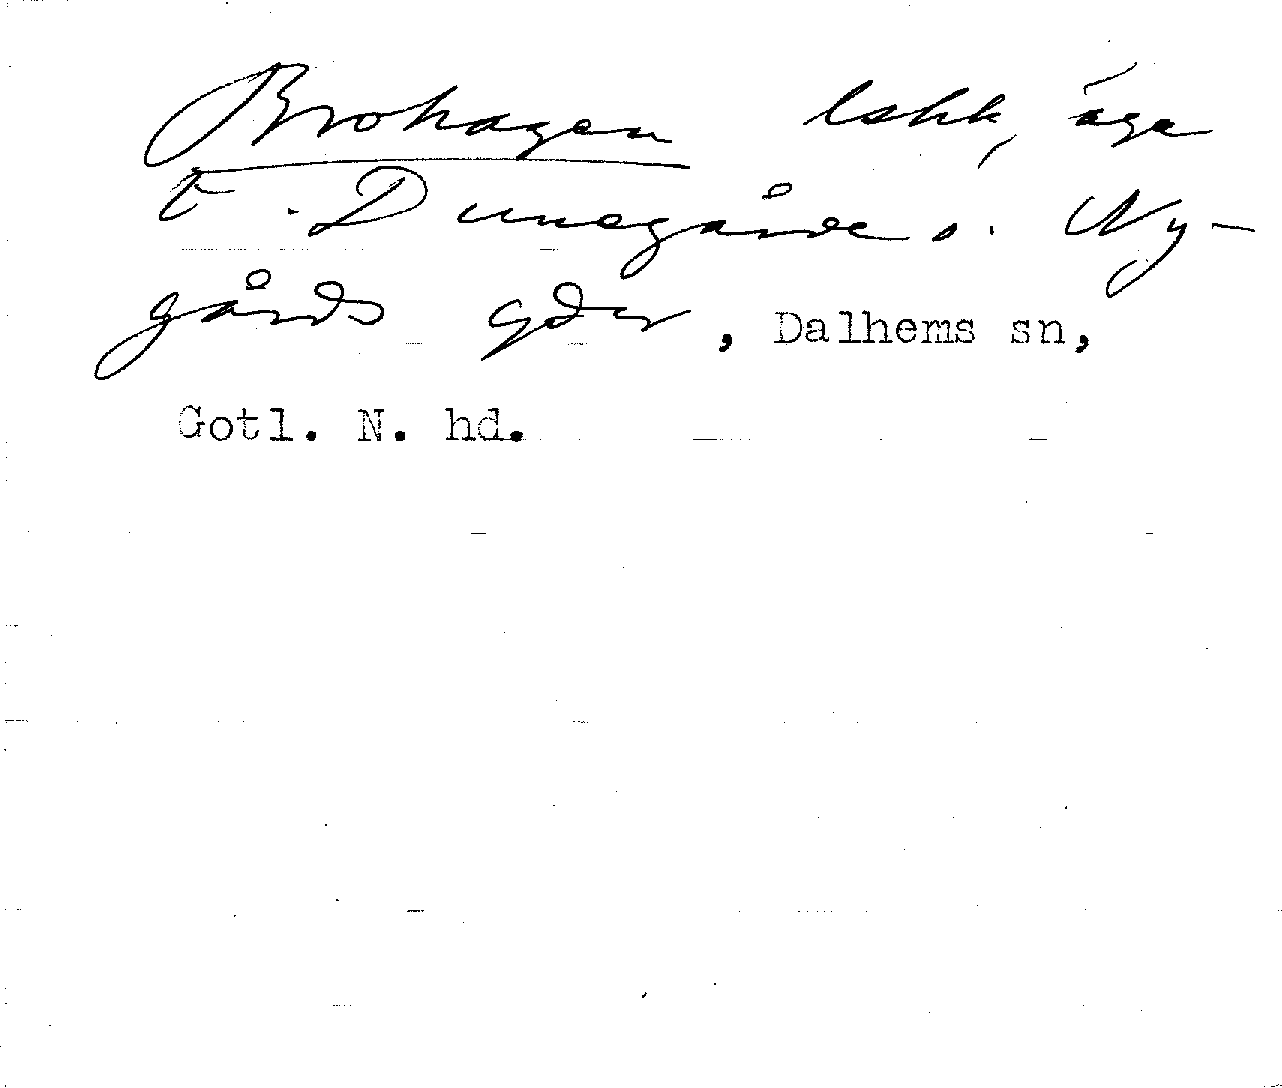 Brohagen lskh, äga
t. Dunegårde o. Ny-
gårds gdr, Dalhems sn,
Gotl. N. hd.